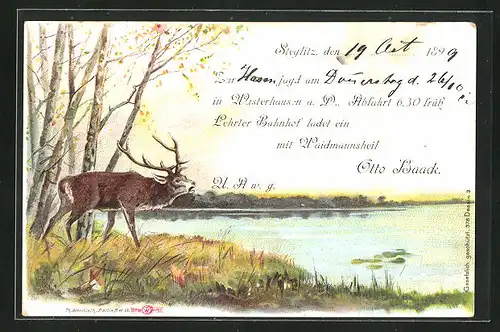 Steglitz, den 19 Oct. 1899
Zur Hasenjagd am Donerstag d. 26/10
in Wusterhausen a. D., Abfahrt 6.30 früh
Lehrter Bahnhof ladet ein
mit Waidmannsheil
Otto Haack.
U. A. w. g.
Gesetzlich geschützt. Dessin 3